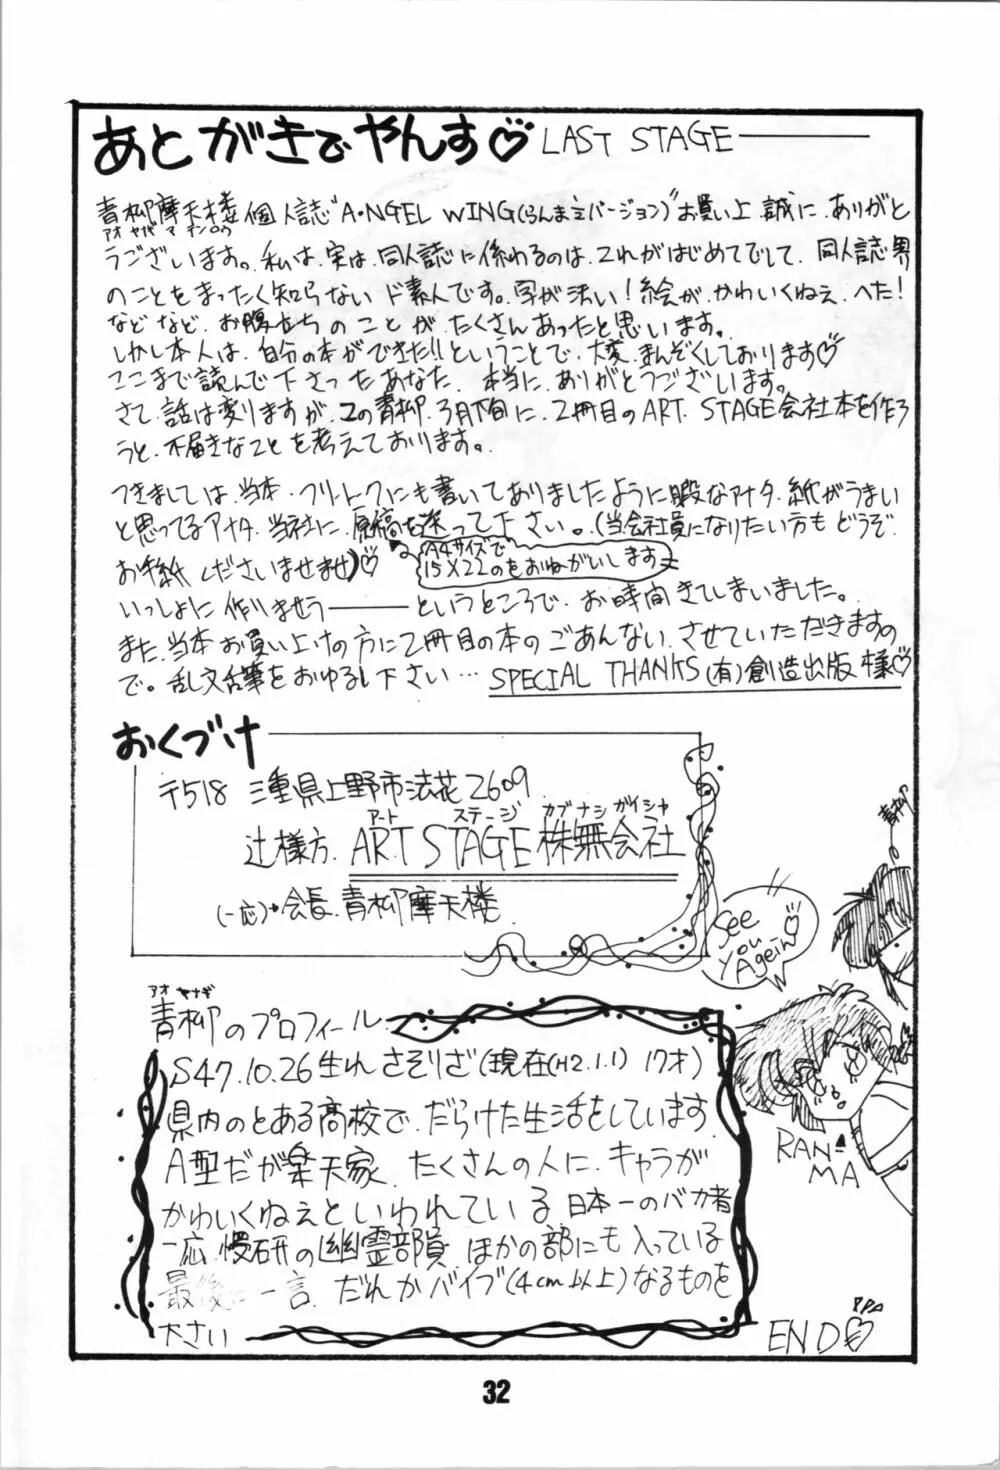 あとがきでやんす♡ LAST STAGE
青柳摩天楼個人誌"A・NGEL WING(らんま½バージョン)"お買い上、誠に、ありがと
アオヤギマテンロウ
うございます。私は、実は、同人誌に係わるのは、これがはじめてでして、同人誌界
のことをまったく知らないド素人です。字が汚い!絵が、かわいくねぇ、へた!
などなど、お腹立ちのことが、たくさんあったと思います。
しかし本人は、自分の本ができた!!ということで、大変、まんぞくしております♡
ここまで読んで下さったあなた、本当に、ありがとうございます。
さて、話は変りますが、この青柳、3月下旬に、2冊目のART. STAGE会社本を作ろ
うと、不届きなことを考えております。
つきましては、当本・フリートークにも書いておりましたように暇なアナタ、絵がうまい
と思ってるアナタ、当社に、原稿を送って下さい。(当会社員になりたい方もどうぞ
A4サイズで
15×22のをおねがいします
お手紙くださいませませ)♡
いっしょに作りませう――――というところで、お時間きてしまいました。
また、当本お買い上げの方に2冊目の本のごあんない、させていただきますの
で。乱文乱筆をおゆるし下さい… SPECIAL THANKS(有)創造出版様♡
おくづけ
〒518 三重県上野市法花2609
アート ステージ カブナシガイシャ
辻様方. ART STAGE 株無会社
(一応)会長、青柳摩天楼
青柳
See
you
Agein
RAN-
MA
アオ ヤナギ
青柳のプロフィール
S47.10.26生れ さそりざ(現在(H2.1.1) 17才)
県内のとある高校で、だらけた生活をしています.
A型だが楽天家、たくさんの人に、キャラが
かわいくねぇといわれている日本一のバカ者
一応、慢研の幽霊部員、ほかの部にも入っている
最後に一言、だれかバイブ(4cm以上)なるものを
下さい
END
32